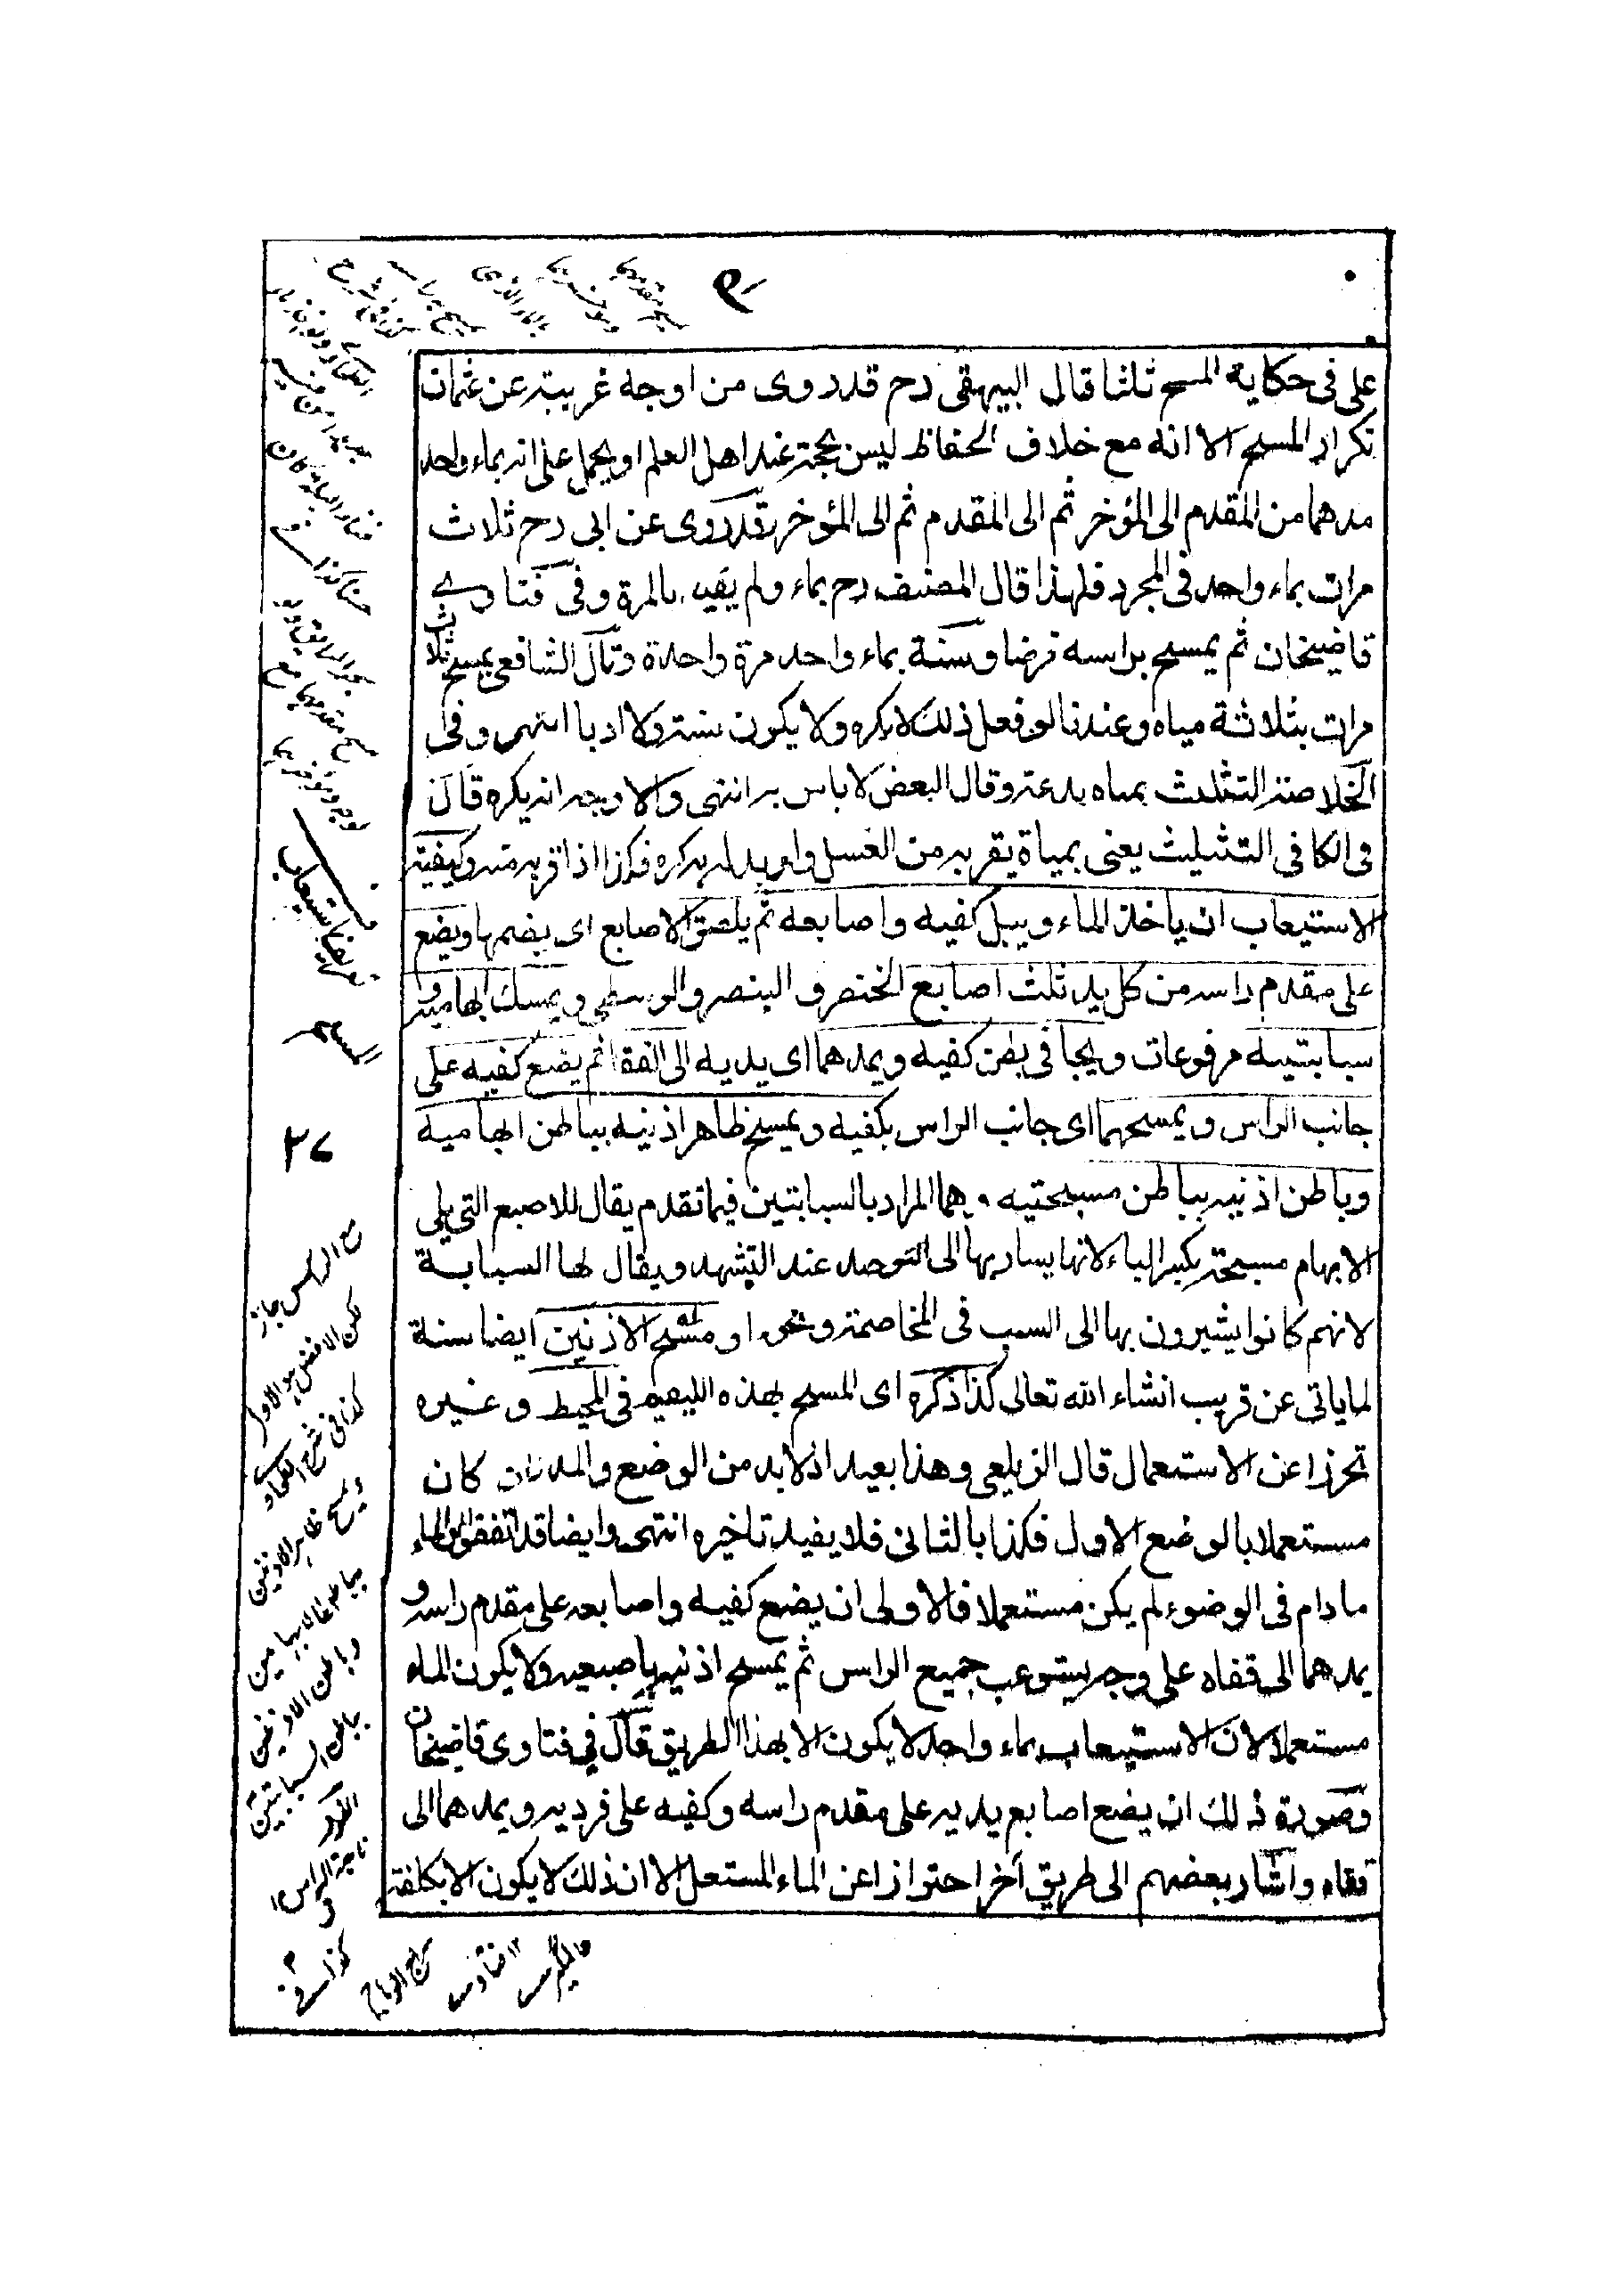 على فى حكاية المسح ثلثا قال البيهقى رح قد روى من اوجه غريبة عن عثمان
تكرار المسح الا انه مع خلاف الحفاظ ليس بحجة عند اهل العلم او يحمل على انه بماء واحد
مدهما من المقدم الى المؤخر ثم الى المقدم ثم الى المؤخر وقد روى عن ابى رح ثلاث
مرات بماء واحد فى المجرد فلهذا قال المصنف رح بماء ولم يقيد بالمرة وفى فتاوے
قاضيخان ثم يمسح براسه فرضا وسنة بماء واحد مرة واحدة وقال الشافعى يمسح ثلاث
مرات بثلاثة مياه وعندنا لو فعل ذلك لا يكره ولا يكون سنة ولا ادبا انتهى وفى
الخلاصة التثليث بمياه بدعة وقال البعض لا باس به انتهى والاوجه انه يكره قال
فى الكافى التثليث يعنى بمياة يقربه من الغسل ولو بدله به كره فكذا اذا قربه منه وكيفية
الاستيعاب ان ياخذ الماء ويبل كفيه واصابعه ثم يلصق الاصابع اى يضمها ويضع
على مقدم راسه من كل يد ثلث اصابع الخنصر و البنصر والوسطى ويمسك ابهاميه و
سبابتيه مرفوعات ويجافى بطن كفيه ويمدهما اى يديه الى القفا ثم يضع كفيه على
جانب الراس ويمسحهما اى جانب الراس بكفيه ويمسح ظاهر اذنيه بباطن ابهاميه
وباطن اذنيه بباطن مسبحتيه وهما المراد بالسبابتين فيما تقدم يقال للاصبع التى يلى
الابهام مسبحة بكسر الباء لانها يشار بها الى التوحد عند التشهد ويقال لها السبابة
لانهم كانوا يشيرون بها الى السب فى المخاصمة ونحوه او مسح الاذنين ايضا سنة
لما ياتى عن قريب انشاء الله تعالى كذا ذكره اى المسح بهذه الكيفية فى المحيط وغيره
تحرزا عن الاستعمال قال الزيلعى وهذا بعيد اذ لا بد من الوضع والمد فان كان
مستعملا بالوضع الاول فكذا بالثانى فلا يفيد تاخيره انتهى وايضا قد اتفقوا ان الماء
ما دام فى الوضوء لم يكن مستعملا فالاولى ان يضع كفيه واصابعه على مقدم راسه و
يمدهما الى قفاه على وجه يستوعب جميع الراس ثم يمسح اذنيه باصبعيه ولا يكون الماء
مستعملا لان الاستيعاب بماء واحد لا يكون الا بهذا الطريق قال فى فتاوى قاضيخان
وصورة ذلك ان يضع اصابع يديه على مقدم راسه وكفيه على فوديه ويمدهما الى
قفاه واشار بعضهم الى طريق آخر احترازا عن الماء المستعمل الا ان ذلك لا يكون الا بكلفة
مع الراس جاز
لكن الافضل هو الاول
كذا فى شرح الطحاوے
ويمسح ظاهر الاذنين
بباطن الابهامين
وباطن الاذنين
بباطن السبابتين
كذا فى
سراج الوهاج